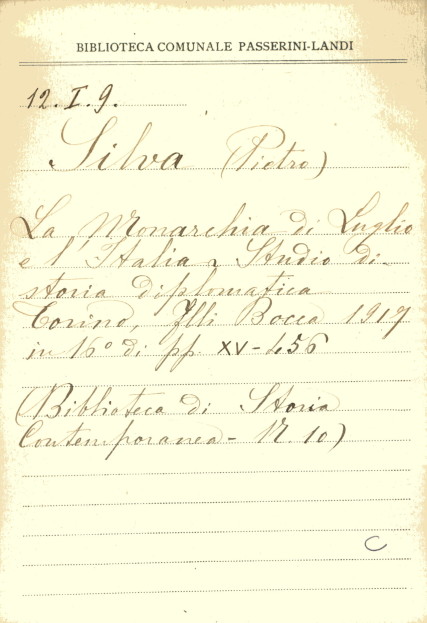 BIBLIOTECA COMUNALE PASSERINI-LANDI
12.I.9.
Silva (Pietro)
La Monarchia di Luglio
e l'Italia - Studio di
storia diplomatica
Torino, Flli Bocca 1917
in 16° di pp. XV-456
(Biblioteca di Storia
Contemporanea - N. 10)
C